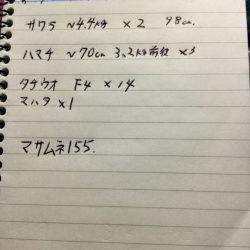 サワラ ~4.4kg ×2 98cm.
ハマチ ~70cm 3.2kg前後 ×3
タチウオ F4 ×14
マハタ ×1
マサムネ155.